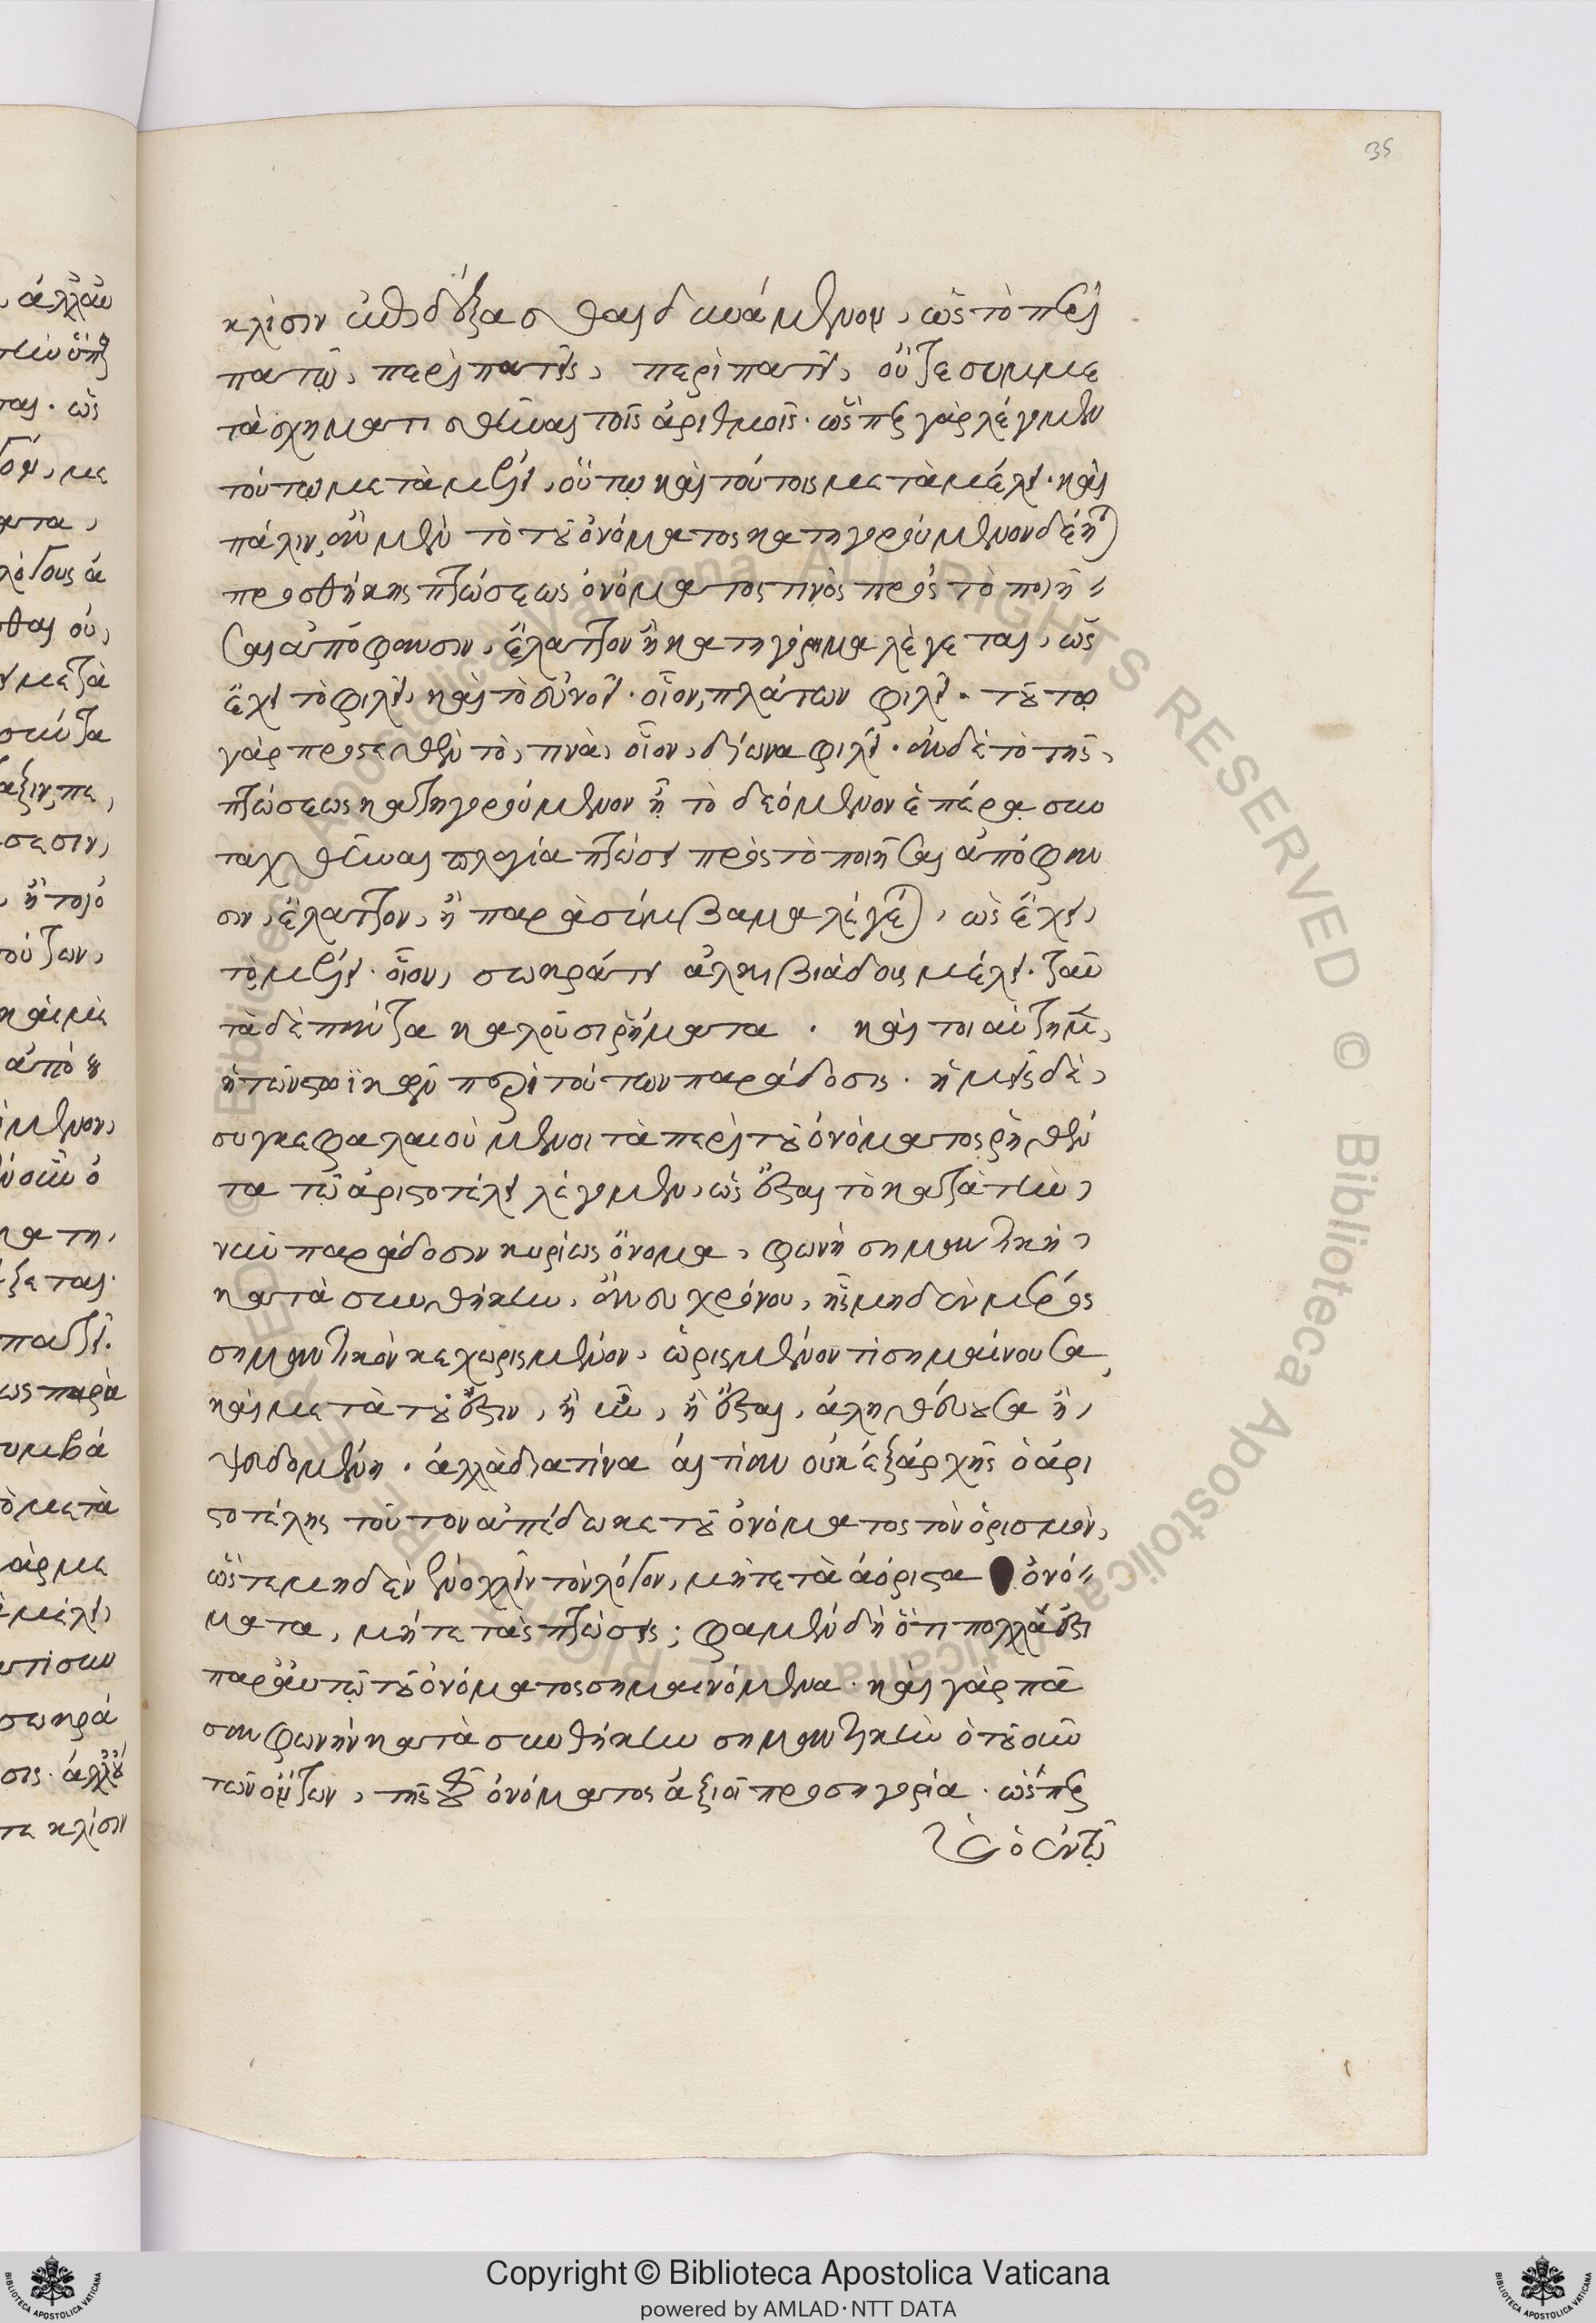 35
κλίσιν ἐπιδέξασθαι δυνάμενον, ὡς τὸ περι
πατῶ, περιπατεῖς, περιπατεῖ, οὔτε συμμε
τασχηματισθῆναι τοῖς ἀριθμοῖς. ὥσπερ γὰρ λέγομεν
τούτῳ μεταμέλει, οὕτω καὶ τούτοις μεταμέλει. καὶ
πάλιν, ἂν μὲν τὸ τοῦ ὀνόματος κατηγορούμενον δέηται
προσθήκης πτώσεως ὀνόματος τινὸς πρὸς τὸ ποιῆ
σαι ἀπόφανσιν, ἔλαττον ἢ κατηγόρημα λέγεται, ὡς
ἔχει τὸ φιλεῖ, καὶ τὸ εὐνοεῖ. οἷον, πλάτων φιλεῖ. τούτῳ
γὰρ προστεθὲν τὸ, τινὰ, οἷον, δίωνα φιλεῖ. ἂν δὲ τὸ τῆς,
πτώσεως κατηγορούμενον ἦ τὸ δεόμενον ἑτέρᾳ συν
ταχθῆναι πλαγίᾳ πτώσει πρὸς τὸ ποιῆσαι ἀπόφαν
σιν, ἔλαττον, ἢ παρασύμβαμα λέγεται, ὡς ἔχει,
τὸ μέλει. οἷον, σωκράτει ἀλκιβιάδους μέλει. ταῦ
τα δὲ πάντα καλοῦσι ῥήματα. καὶ τοιαύτη μὲν,
ἡ τῶν στωϊκῶν περὶ τούτων παράδοσις. ἡμεῖς δὲ,
συγκεφαλαιούμενοι τὰ περὶ τοῦ ὀνόματος ῥηθέν
τα τῷ ἀριστοτέλει λέγομεν, ὡς ἔσται τὸ κατὰ τὴν,
νῦν παράδοσιν κυρίως ὄνομα, φωνὴ σημαντικὴ,
κατὰ συνθήκην, ἄνευ χρόνου, ἧς μηδὲν μέρος
σημαντικὸν κεχωρισμένον, ὡρισμένον τὶ σημαίνουσα,
καὶ μετὰ τοῦ ἔστιν, ἢ ἦν, ἢ ἔσται, ἀληθεύουσα ἢ,
ψευδομένη. ἀλλὰ διὰ τίνα αἰτίαν οὐκ ἐξαρχῆς ὁ ἀρι
στοτέλης τοῦτον ἀπέδωκε τοῦ ὀνόματος τὸν ὁρισμὸν,
ὥστε μηδὲν ἐνοχλεῖν τὸν λόγον, μήτε τὰ ἀόριστα ὀνό
ματα, μήτε τὰς πτώσεις; φαμὲν δὴ ὅτι πολλά ἐστι
παρ' αὐτῷ τοῦ ὀνόματος σημαινόμενα. καὶ γὰρ πᾶ
σαν φωνὴν κατὰ συνθήκην σημαντικὴν ὁτουοῦν
τῶν ὄντων, τῆς τοῦ ὀνόματος ἀξιοῖ προσηγορία. ὥσπερ
καὶ ὁ ἐν τῷ